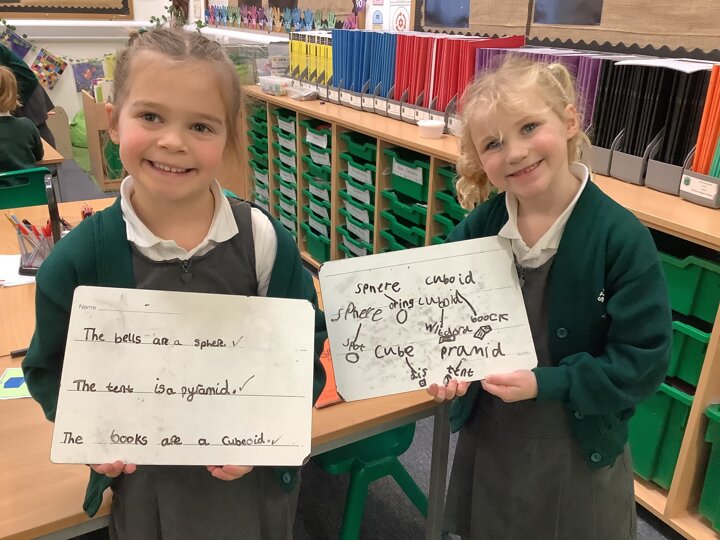 Name
The bells are a sphere.
The tent is a pyramid.
The books are a cubeoid.
sphere cuboid
sphere oring cuboid
Wizard boocs
spot
cube pramid
dis tent